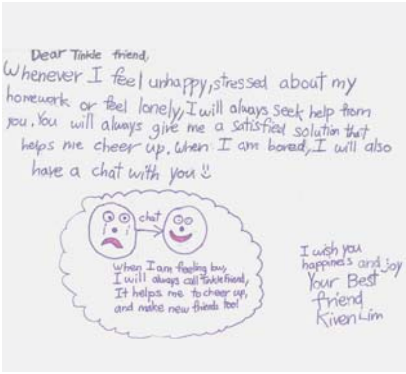 Dear Tinkle friend,
Whenever I feel unhappy, stressed about my
homework or feel lonely, I will always seek help from
you. You will always give me a satisfied solution that
helps me cheer up. When I am bored, I will also
have a chat with you
chat
When I am feeling
I will always call tinkle friend,
It helps me to cheer up,
and make new friends too!
I wish you
happiness and joy
Your Best
friend
Kiven Lim